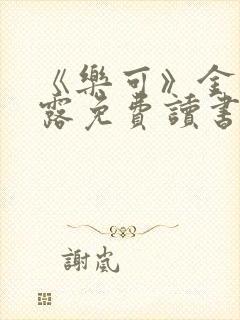 《樂可》金
露免費讀書
謝嵐